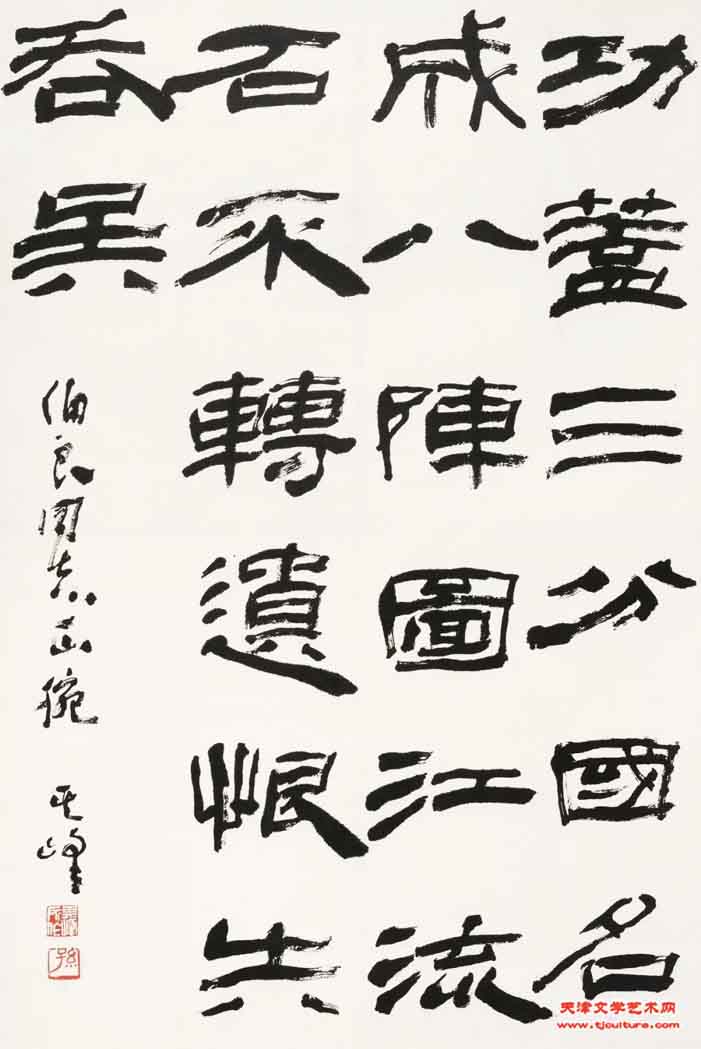 功蓋三分國名
成八陣圖江流
石不轉遺恨失
吞吳
伯良同志正腕
其峰
孫
天津文学艺术网
www.tjculture.com